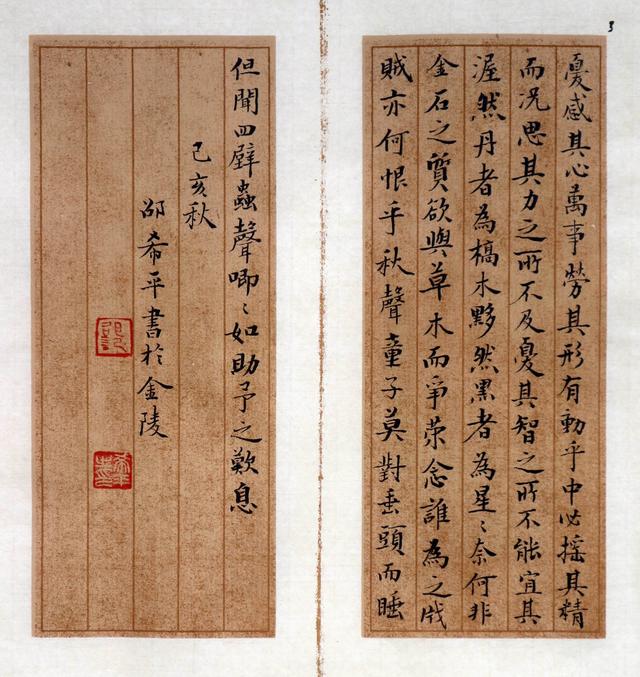 3
憂感其心萬事勞其形有動乎中必摇其精
而况思其力之所不及憂其智之所不能宜其
渥然丹者為槁木黟然黑者為星〻奈何非
金石之質欲與草木而爭荣念誰為之戕
賊亦何恨乎秋聲童子莫對垂頭而睡
但聞四壁蟲聲唧〻如助予之歎息
己亥秋
邵希平書於金陵